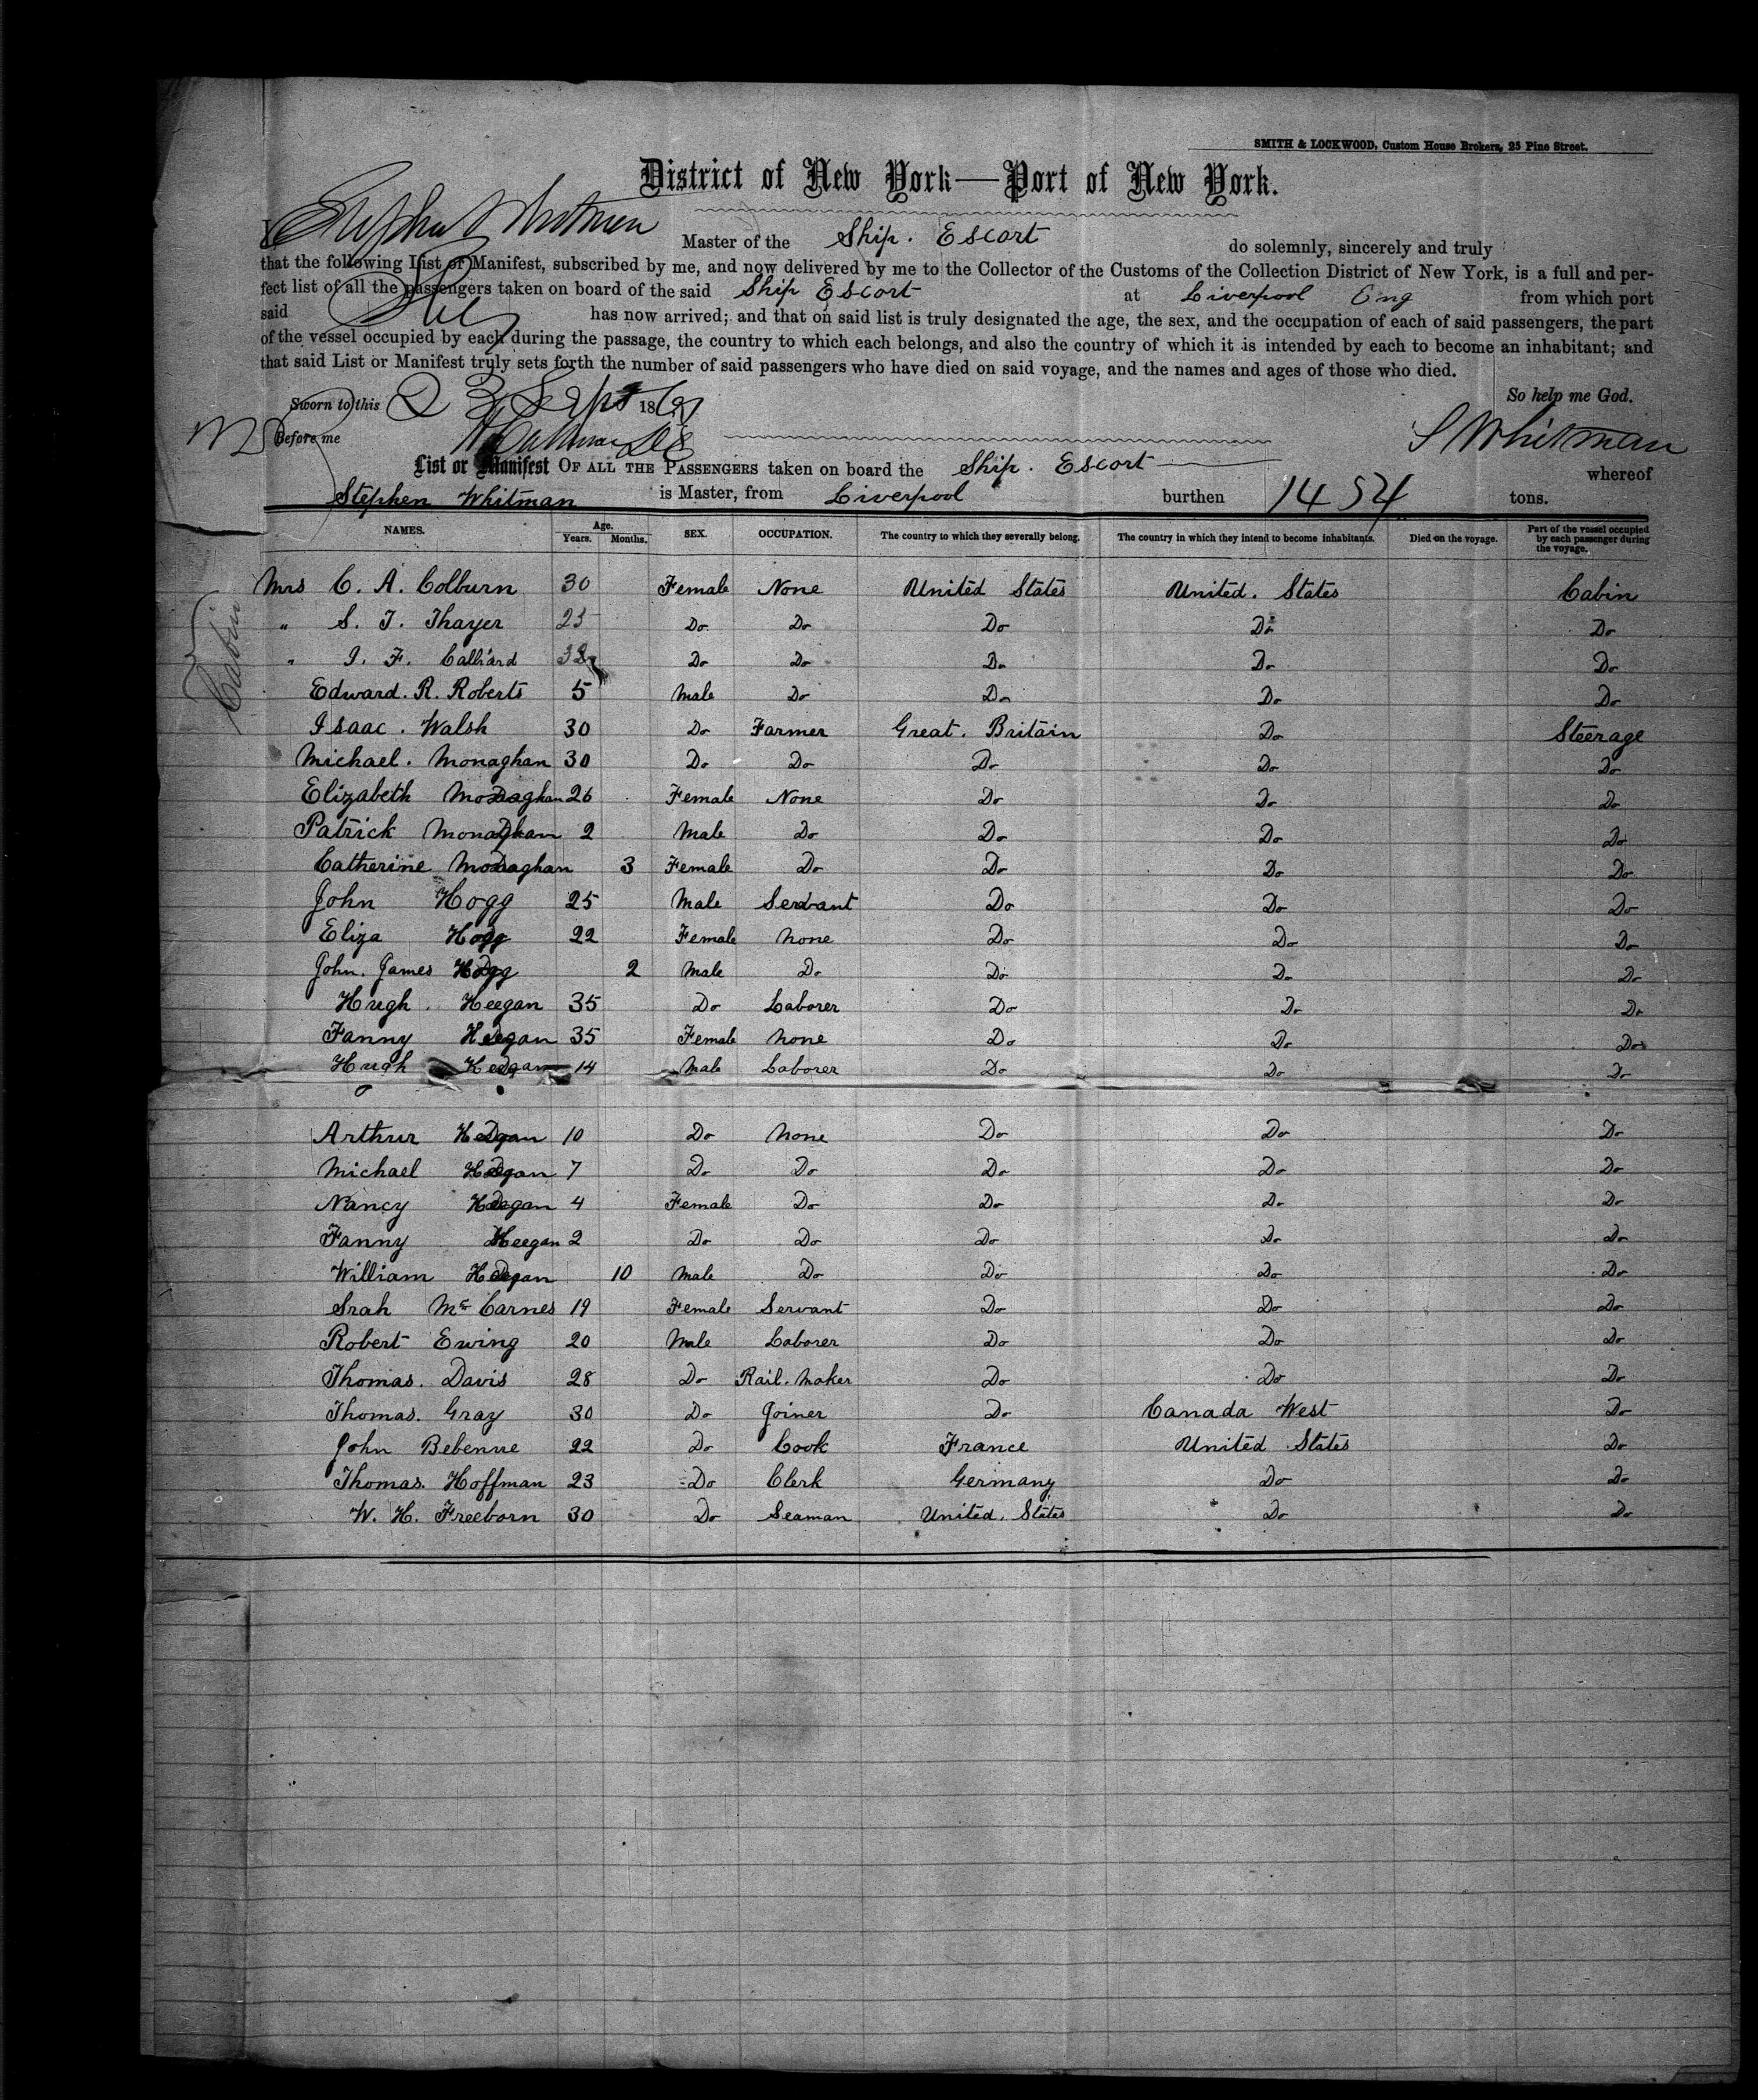 SMITH & LOCKWOOD, Custom House Brokers, 25 Pine Street.
District of New York—Port of New York.
I Stephen Whitman Master of the Ship. Escort do solemnly, sincerely and truly
that the following List or Manifest, subscribed by me, and now delivered by me to the Collector of the Customs of the Collection District of New York, is a full and per-
fect list of all the passengers taken on board of the said Ship Escort at Liverpool Eng from which port
said has now arrived; and that on said list is truly designated the age, the sex, and the occupation of each of said passengers, the part
of the vessel occupied by each during the passage, the country to which each belongs, and also the country of which it is intended by each to become an inhabitant; and
that said List or Manifest truly sets forth the number of said passengers who have died on said voyage, and the names and ages of those who died.
Sworn to this 23 Sept 186 So help me God.
Before me S Whitman
List or Manifest OF ALL THE PASSENGERS taken on board the Ship. Escort whereof
Stephen Whitman is Master, from Liverpool burthen 1454 tons.
NAMES. Age. Years. Months. SEX. OCCUPATION. The country to which they severally belong. The country in which they intend to become inhabitants. Died on the voyage. Part of the vessel occupied by each passenger during the voyage.
Cabin
Mrs C. A. Colburn 30 Female None United States United. States Cabin
" S. T. Thayer 25 Do Do Do Do Do
" I. F. Calliard 32 Do Do Do Do Do
Edward. R. Roberts 5 Male Do Do Do Do
Isaac. Walsh 30 Do Farmer Great. Britain Do Steerage
Michael. Monaghan 30 Do Do Do Do Do
Elizabeth Monaghan 26 Female None Do Do Do
Patrick Monaghan 2 Male Do Do Do Do
Catherine Monaghan 3 Female Do Do Do Do
John Hogg 25 Male Servant Do Do Do
Eliza Hogg 22 Female None Do Do Do
John. James Hogg 2 Male Do Do Do Do
Hugh. Keegan 35 Do Laborer Do Do Do
Fanny Keegan 35 Female None Do Do Do
Hugh Keegan 14 Male Laborer Do Do Do
Arthur Keegan 10 Do None Do Do Do
Michael Keegan 7 Do Do Do Do Do
Nancy Keegan 4 Female Do Do Do Do
Fanny Keegan 2 Do Do Do Do Do
William Keegan 10 Male Do Do Do Do
Srah Mc Carnes 19 Female Servant Do Do Do
Robert Ewing 20 Male Laborer Do Do Do
Thomas. Davis 28 Do Rail. Maker Do Do Do
Thomas. Gray 30 Do Joiner Do Canada West Do
John Bebenne 22 Do Cook France United States Do
Thomas. Hoffman 23 Do Clerk Germany Do Do
W. H. Freeborn 30 Do Seaman United. States Do Do